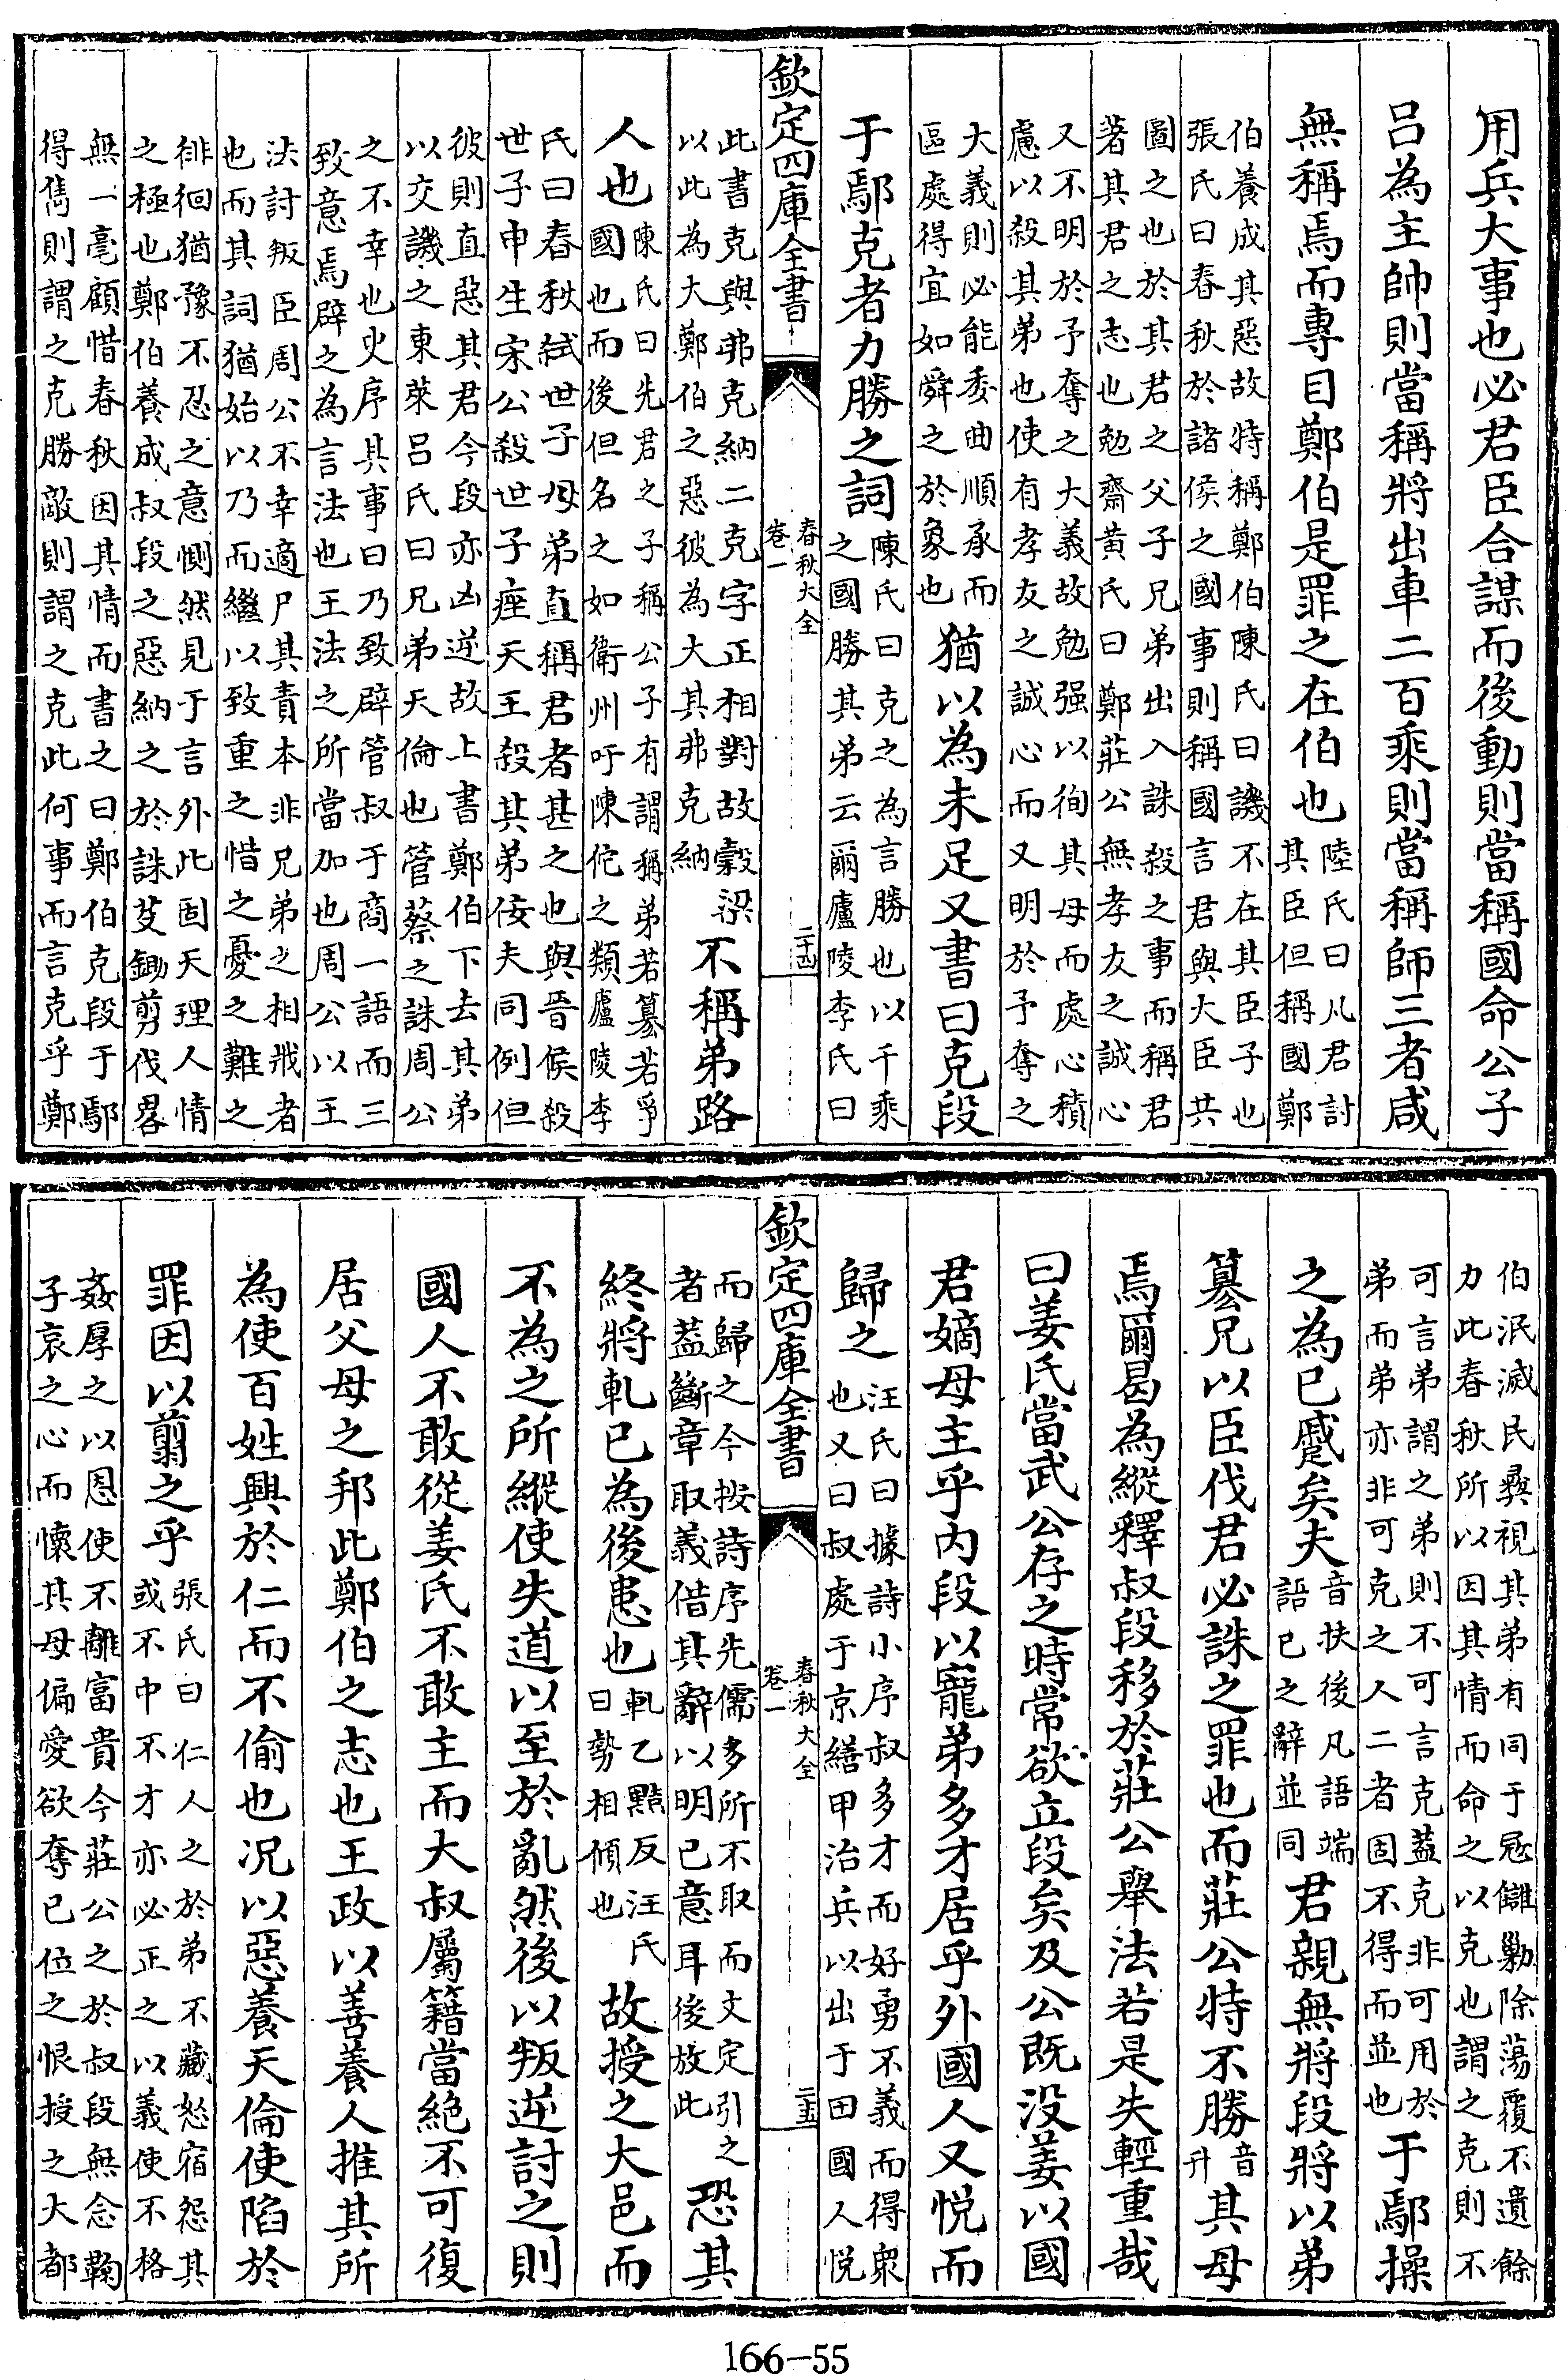 用兵大事也必君臣合謀而後動則當稱國命公子
吕為主帥則當稱將出車二百乘則當稱師三者咸
無稱焉而專目鄭伯是罪之在伯也陸氏曰凡君討其臣但稱國鄭
伯養成其惡故特稱鄭伯陳氏曰譏不在其臣子也
張氏曰春秋於諸侯之國事則稱國言君與大臣共
圖之也於其君之父子兄弟出入誅殺之事而稱君
著其君之志也勉齋黄氏曰鄭莊公無孝友之誠心
又不明於予奪之大義故勉强以徇其母而處心積
慮以殺其弟也使有孝友之誠心而又明於予奪之
大義則必能委曲順承而區處得宜如舜之於象也猶以為未足又書曰克段
于鄢克者力勝之詞陳氏曰克之為言勝也以千乘之國勝其弟云爾廬陵李氏曰
欽定四庫全書
春秋大全
卷一
二十四
此書克與弗克納二克字正相對故穀梁以此為大鄭伯之惡彼為大其弗克納不稱弟路
人也陳氏曰先君之子稱公子有謂稱弟若簒若爭國也而後但名之如衛州吁陳佗之類廬陵李
氏曰春秋弑世子母弟直稱君者甚之也與晉侯殺
世子申生宋公殺世子痤天王殺其弟佞夫同例但
彼則直惡其君今段亦凶逆故上書鄭伯下去其弟
以交譏之東萊吕氏曰兄弟天倫也管蔡之誅周公
之不幸也史序其事曰乃致辟管叔于商一語而三
致意焉辟之為言法也王法之所當加也周公以王
法討叛臣周公不幸適尸其責本非兄弟之相戕者
也而其詞猶始以乃而繼以致重之惜之憂之難之
徘徊猶豫不忍之意惻然見于言外此固天理人情
之極也鄭伯養成叔段之惡納之於誅芟鋤剪伐畧
無一毫顧惜春秋因其情而書之曰鄭伯克段于鄢
得雋則謂之克勝敵則謂之克此何事而言克乎鄭
伯泯滅民彝視其弟有同于冦讎勦除蕩覆不遺餘
力此春秋所以因其情而命之以克也謂之克則不
可言弟謂之弟則不可言克蓋克非可用於弟而弟亦非可克之人二者固不得而並也于鄢操
之為已蹙矣夫音扶後凡語端語已之辭並同君親無將段將以弟
簒兄以臣伐君必誅之罪也而莊公特不勝音升其母
焉爾曷為縱釋叔段移於莊公舉法若是失輕重哉
曰姜氏當武公存之時常欲立段矣及公既没姜以國
君嫡母主乎内段以寵弟多才居乎外國人又悦而
歸之汪氏曰據詩小序叔多才而好勇不義而得衆也又曰叔處于京繕甲治兵以出于田國人悦
欽定四庫全書
春秋大全
卷一
二十五
而歸之今按詩序先儒多所不取而文定引之者蓋斷章取義借其辭以明已意耳後放此恐其
終將軋已為後患也軋乙黠反汪氏曰勢相傾也故授之大邑而
不為之所縱使失道以至於亂然後以叛逆討之則
國人不敢從姜氏不敢主而大叔屬籍當絶不可復
居父母之邦此鄭伯之志也王政以善養人推其所
為使百姓興於仁而不偷也况以惡養天倫使陷於
罪因以翦之乎張氏曰仁人之於弟不藏怒宿怨其或不中不才亦必正之以義使不格
姦厚之以恩使不離富貴今莊公之於叔段無念鞠
子哀之心而懷其母偏愛欲奪已位之恨授之大都
166-55